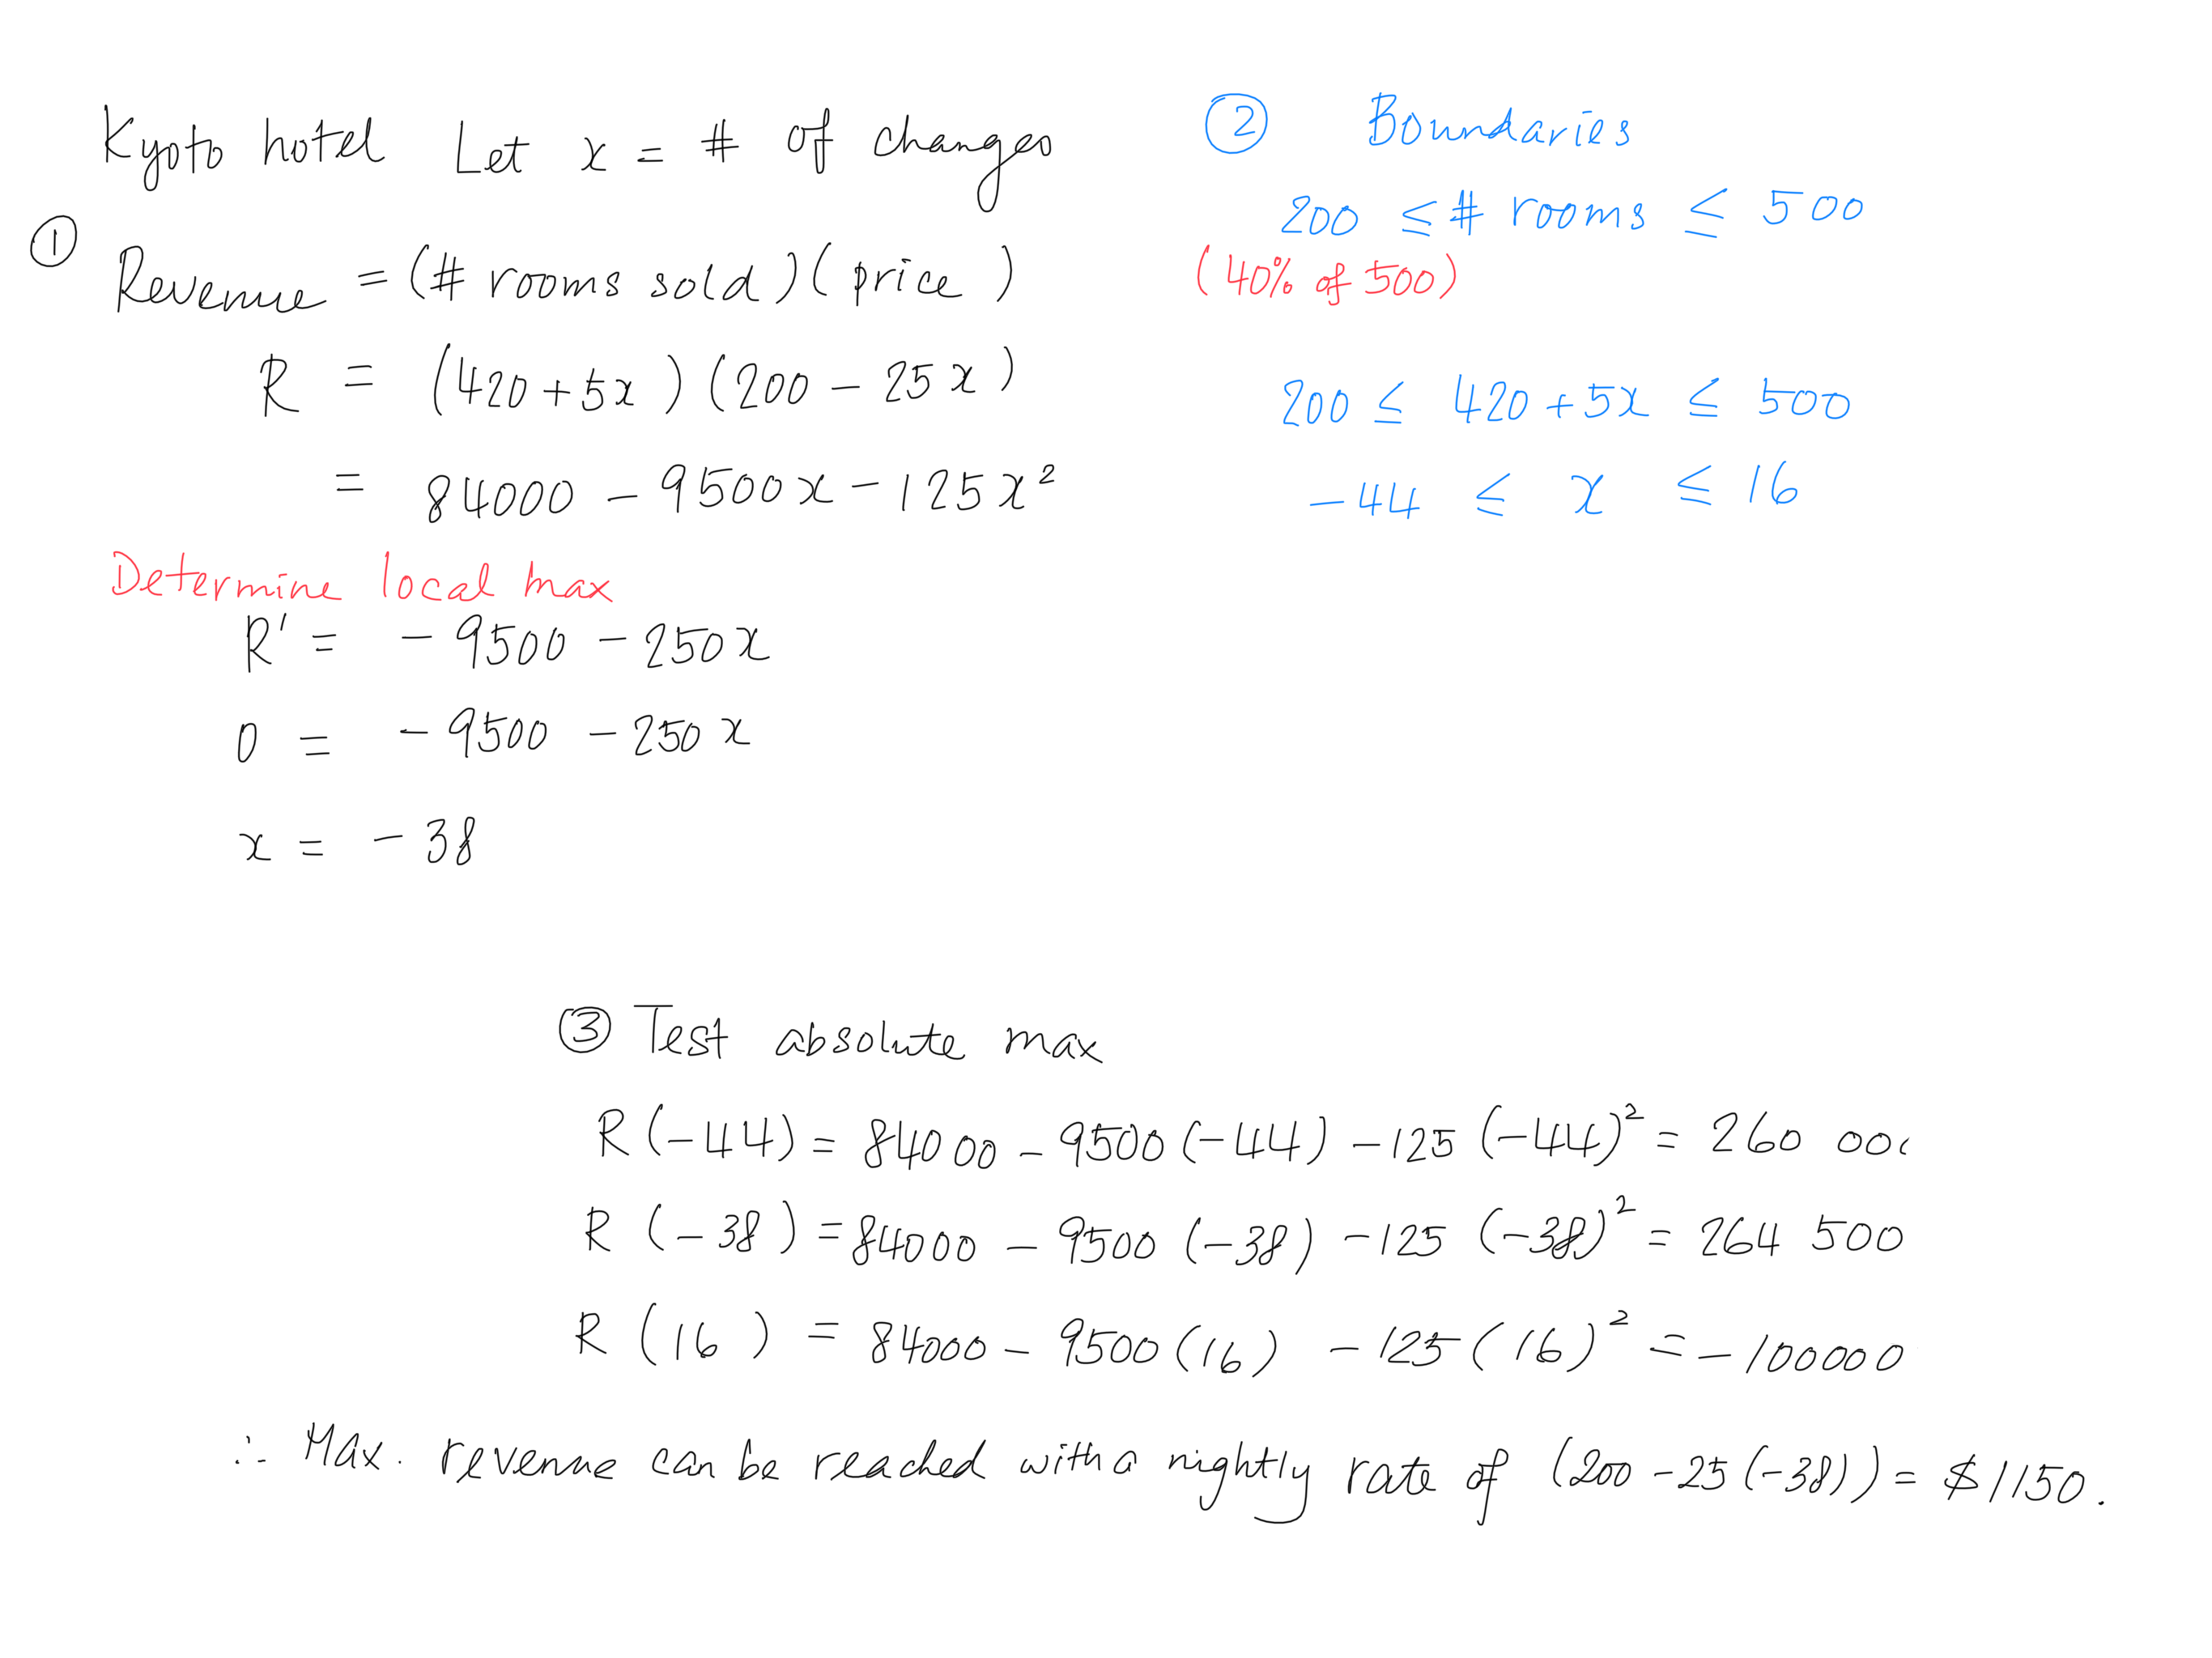 Kyoto hotel Let x = # of changes
①
Revenue = (# rooms sold)(price)
R = (420+5x)(200-25x)
= 84000 - 9500x - 125x²
Determine local max
R' = -9500 - 250x
0 = -9500 - 250x
x = -38
② Boundaries
200 ≤ # rooms ≤ 500
(40% of 500)
200 ≤ 420+5x ≤ 500
-44 ≤ x ≤ 16
③ Test absolute max
R(-44) = 84000 - 9500(-44) - 125(-44)² = 260 000
R(-38) = 84000 - 9500(-38) - 125(-38)² = 264 500
R(16) = 84000 - 9500(16) - 125(16)² = -100000
∴ Max. revenue can be reached with a nightly rate of (200-25(-38)) = $1150.